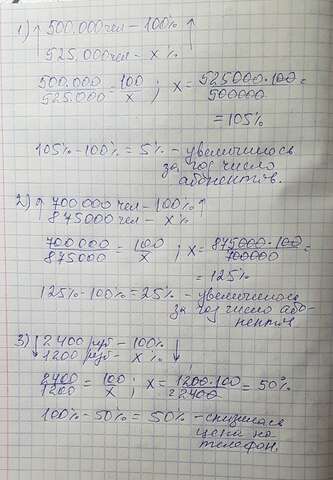 1) ↑ 500.000 чел – 100% ↑
525.000 чел – x %
500.000/525.000 = 100/x ; x = 525000·100/500000 =
= 105%
105% – 100% = 5% – увеличилось
за год число
абонентов.
2) ↑ 700 000 чел – 100% ↑
875000 чел – x %
700 000/875000 = 100/x ; x = 875000·100/700000 =
= 125%
125% – 100% = 25% – увеличилось
за год число або-
нентов.
3) ↓ 2400 руб – 100% ↓
1200 руб – x %
2400/1200 = 100/x ; x = 1200·100/2400 = 50%
100% – 50% = 50% – снизилась
цена на
телефон.